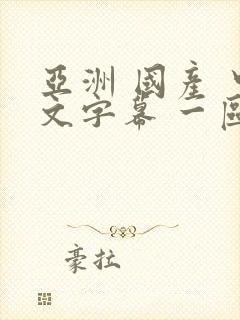 亞洲 國產 中
文字幕 一區
豪拉